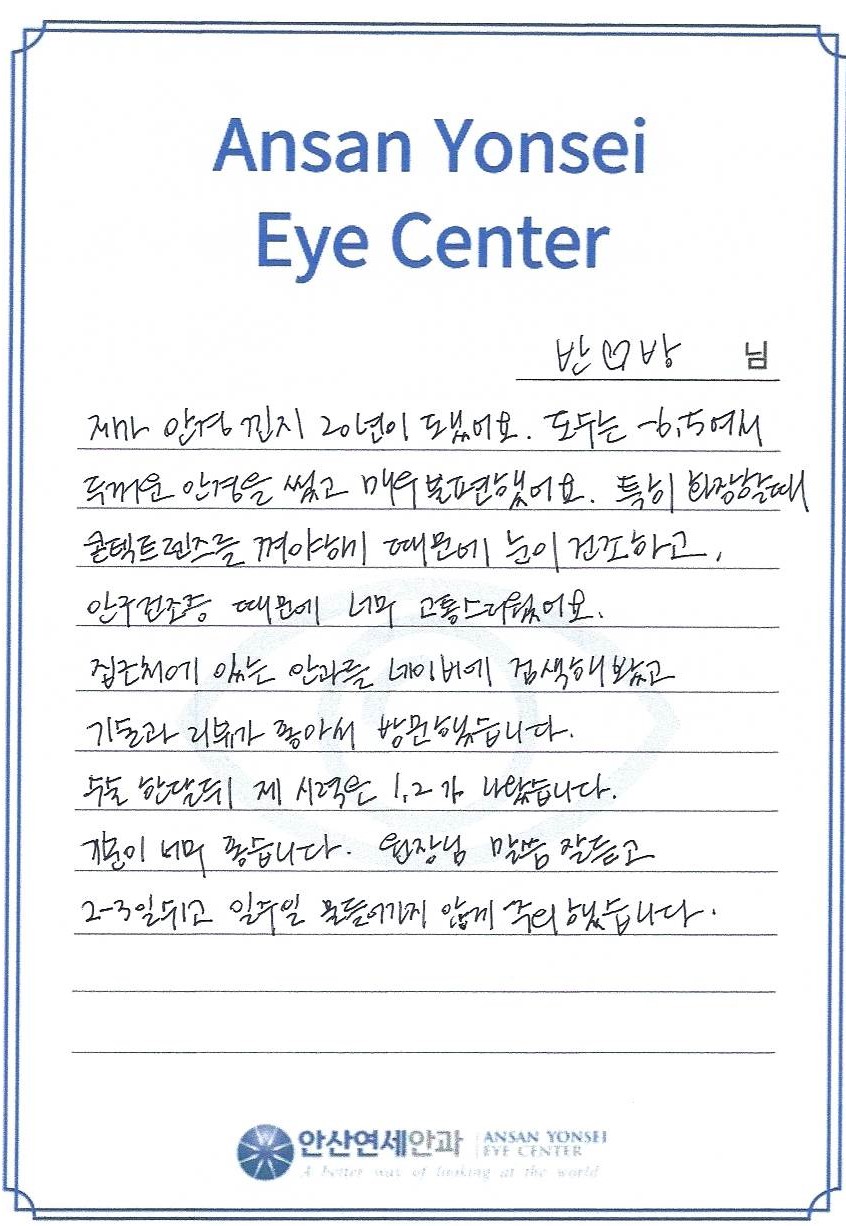 Ansan Yonsei
Eye Center
반♡방 님
제가 안경 낀지 20년이 도냈어요. 도두는 -6.5여서
두꺼운 안경을 썼고 매우 불편했어요. 특히 화장할때
콘텍트렌즈를 껴야해기 때문에 눈이 건조하고,
안구건조증 때문에 너무 고통스러웠어요.
집근처에 있는 안과를 네이버에 검색해봤고
기술과 리뷰가 좋아서 방문했습니다.
수술 한달뒤 제 시력은 1.2가 나왔습니다.
기분이 너무 좋습니다. 원장님 말씀 잘듣고
2-3일쉬고 일주일 물들어가지 않게 주의했습니다.
안산연세안과 ANSAN YONSEI
EYE CENTER
A better way of looking at the world